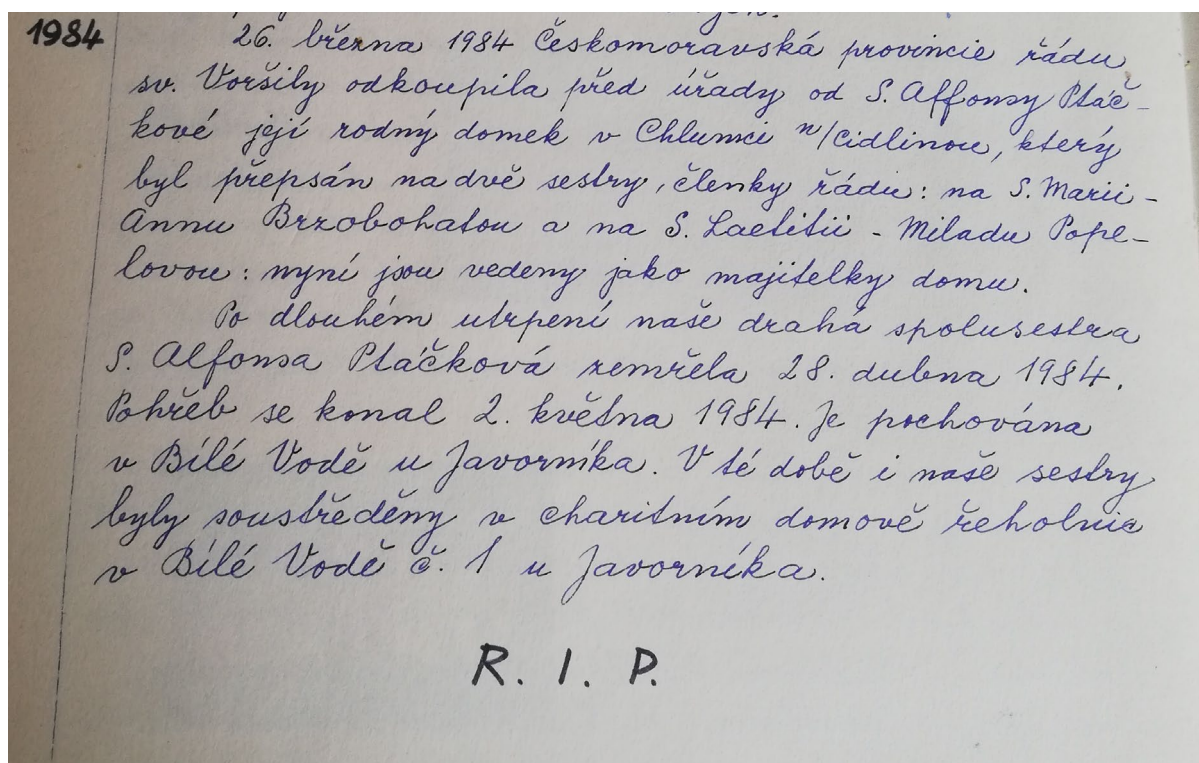 1984
26. března 1984 Českomoravská provincie řádu
sv. Voršily odkoupila před úřady od S. Affonsy Ptáč-
kové její rodný domek v Chlumci n/Cidlinou, který
byl přepsán na dvě sestry, členky řádu: na S. Marii-
Annu Brzobohatou a na S. Laetitii - Miladu Pope-
lovou: nyní jsou vedeny jako majitelky domu.
Po dlouhém utrpení naše drahá spolusestra
S. Alfonsa Ptáčková zemřela 28. dubna 1984.
Pohřeb se konal 2. května 1984. Je pochována
v Bílé Vodě u Javorníka. V té době i naše sestry
byly soustředěny v charitním domově řeholnic
v Bílé Vodě č. 1 u Javorníka.
R. I. P.